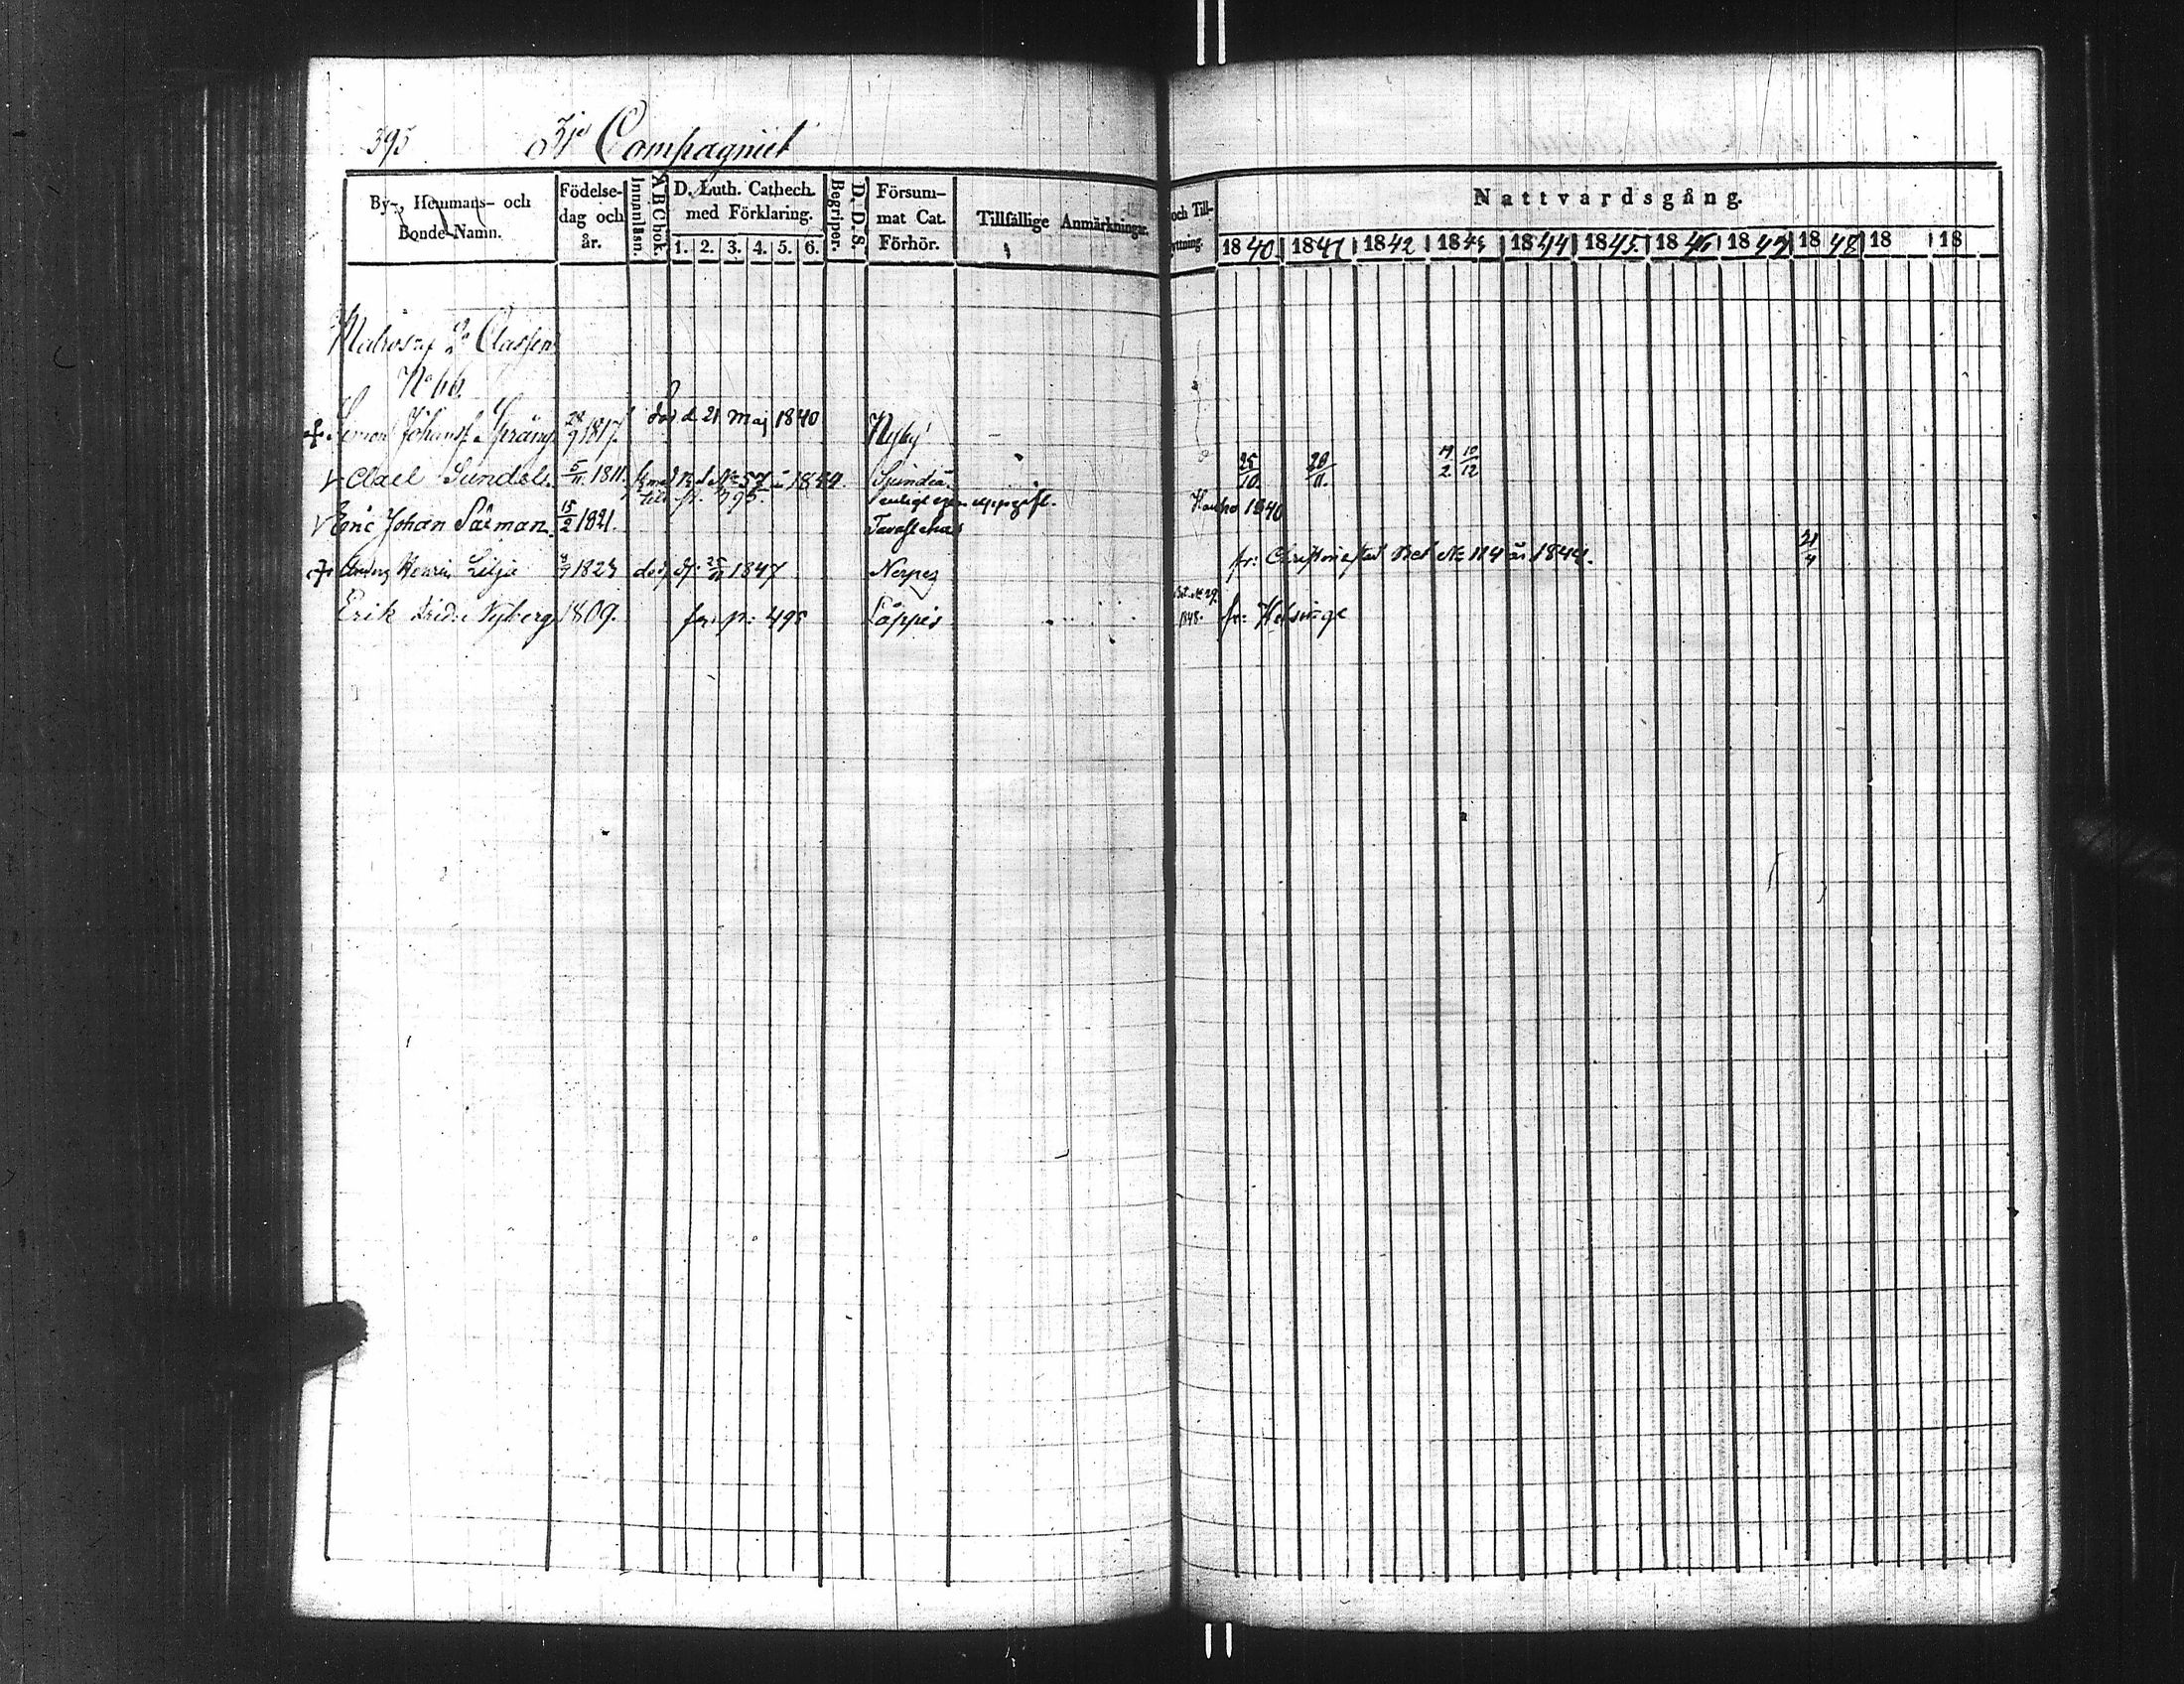 393 3je Compagniet
By-, Hemmans- och Bonde-Namn. Födelse-dag och år. Innanläsn. ABCbok. D. Luth. Cathech. med Förklaring. 1. 2. 3. 4. 5. 6. Begriper. D. D. S. Försum-mat Cat. Förhör. Tillfällige Anmärkningar. och Till- yttning. Nattvardsgång.
1840. 1841 1842 1843 1844 1845. 1846 1847 1848 18 18
Matroser 2a Classen
No 66.
Simon Johansf. Spräng 28/9 1817. död d. 21 Maj 1840 Nyby
Clael Sundel. 5/11 1811. No 57 1844. 25/10. 28/11. 19/2 10/12
till p. 395. enligt egen uppgift.
Eric Johan Palman. 15/2 1821. Tavastehus Hauho 1840
Anders Henric Lilja 4/7 1823 död d. 25/11 1847 Nerpes fr: Christinestad Bet No 114 år 1844. 21/4
Bet. No 29.
Erik Frid: Nyberg 1809. fr: p: 495 Lappis 1848. fr: Helsinge